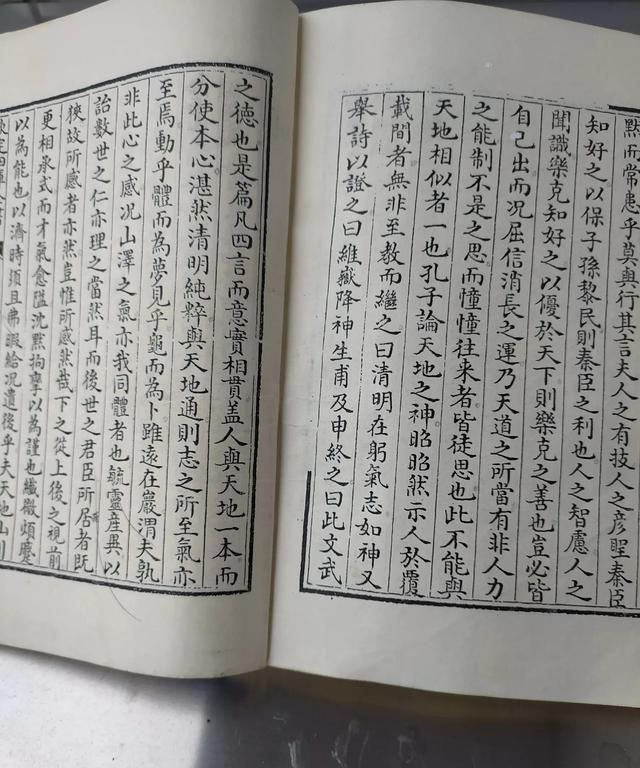 點而常患乎莫與行其言夫人之有技人之彦聖秦臣
知好之以保子孫黎民則秦臣之利也人之智慮人之
聞識樂克知好之以優於天下則樂克之善也豈必皆
自己出而況屈信消長之運乃天道之所當有非人力
之能制不是之思而憧憧往來者皆徒思也此不能與
天地相似者一也孔子論天地之神昭昭然示人於覆
載間者無非至教而繼之曰清明在躬氣志如神又
舉詩以證之曰維嶽降神生甫及申終之曰此文武
之德也是篇凡四言而意實相貫盖人與天地一本而
分使本心湛然清明純粹與天地通則志之所至氣亦
至焉動乎體而為夢見乎龜而為卜雖遠在巖渭夫孰
非此心之感況山澤之氣亦我同體者也毓靈産異以
詒數世之仁亦理之當然耳而後世之君臣所居者既
狹故所感者亦然豈惟所感然哉下之從上後之視前
更相承式而才氣愈隘沈黙拘孿以為謹也纖微煩塵
以為能也以濟時須且弗暇給况遺後乎夫天地山川
欽定四庫全書